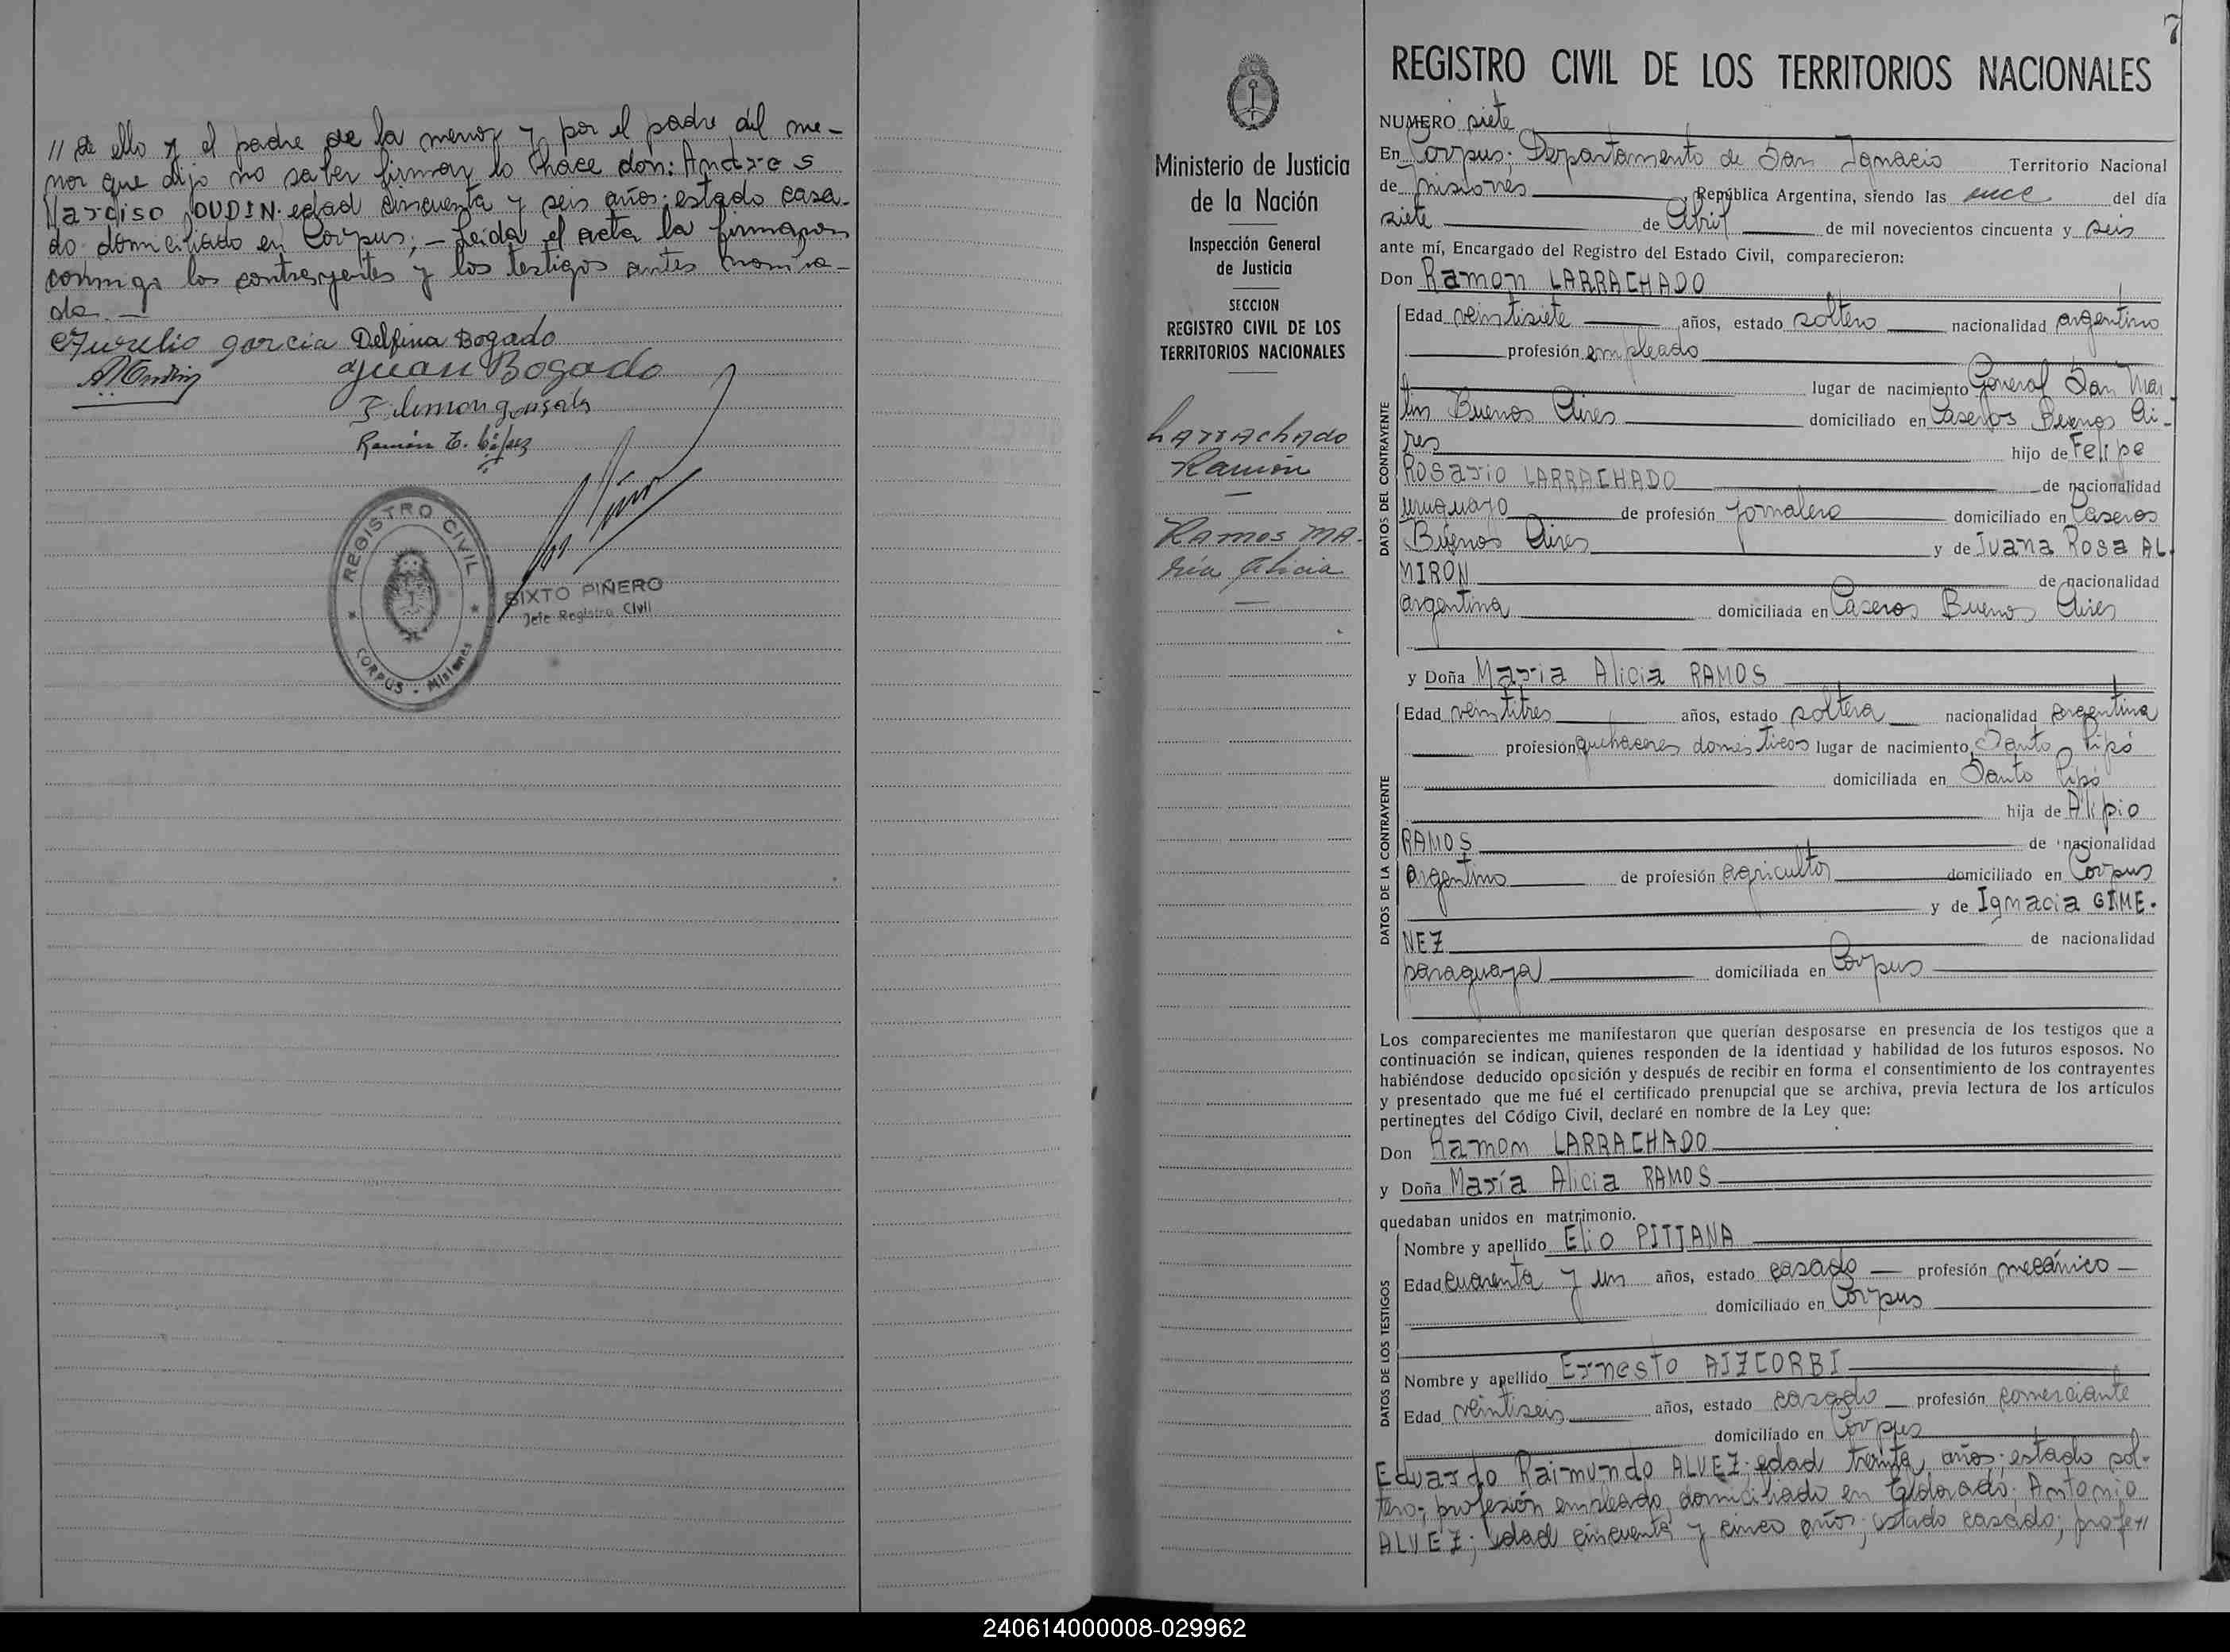 // de ello y el padre de la menor y por el padre del me-
nor que dijo no saber firmar lo hace don: Andres
Narciso OUDIN edad cincuenta y seis años; estado casa-
do domiciliado en Corpus; - Leida el acta la firmaron
conmigo los contrayentes y los testigos antes nombra-
do. -
Aurelio garcia Delfina Bogado
Juan Bogado
Filemon
Ramón
REGISTRO CIVIL
CORPUS - Misiones
SIXTO PIÑERO
Jefe Registro Civil
7
Ministerio de Justicia
de la Nación
Inspección General
de Justicia
SECCION
REGISTRO CIVIL DE LOS
TERRITORIOS NACIONALES
Larrachado
Ramón
Ramos MA-
ria Alicia
REGISTRO CIVIL DE LOS TERRITORIOS NACIONALES
NUMERO siete
En Corpus. Departamento de San Ignacio Territorio Nacional
de Misiones República Argentina, siendo las once del día
siete de Abril de mil novecientos cincuenta y seis
ante mí, Encargado del Registro del Estado Civil, comparecieron:
Don Ramon LARRACHADO
DATOS DEL CONTRAYENTE
Edad veintisiete años, estado soltero nacionalidad argentino
profesión empleado
lugar de nacimiento General San Mar
tin Buenos Aires domiciliado en Caseros Buenos Ai-
res hijo de Felipe
Rosario LARRACHADO de nacionalidad
uruguayo de profesión jornalero domiciliado en Caseros
Buenos Aires y de Juana Rosa AL
MIRON de nacionalidad
argentina domiciliada en Caseros Buenos Aires
y Doña Maria Alicia RAMOS
DATOS DE LA CONTRAYENTE
Edad veintitres años, estado soltera nacionalidad argentina
profesión quehaceres domesticos lugar de nacimiento Santo Pipó
domiciliada en Santo Pipó
hija de Alipio
RAMOS de nacionalidad
argentino de profesión agricultor domiciliado en Corpus
y de Ignacia GIME-
NEZ de nacionalidad
paraguaya domiciliada en Corpus
Los comparecientes me manifestaron que querían desposarse en presencia de los testigos que a
continuación se indican, quienes responden de la identidad y habilidad de los futuros esposos. No
habiéndose deducido oposición y después de recibir en forma el consentimiento de los contrayentes
y presentado que me fué el certificado prenupcial que se archiva, previa lectura de los artículos
pertinentes del Código Civil, declaré en nombre de la Ley que:
Don Ramon LARRACHADO
y Doña María Alicia RAMOS
quedaban unidos en matrimonio.
DATOS DE LOS TESTIGOS
Nombre y apellido Elio PITTANA
Edad cuarenta y un años, estado casado profesión mecánico
domiciliado en Corpus
Nombre y apellido Ernesto AIZCORBI
Edad veintiseis años, estado casado profesión comerciante
domiciliado en Corpus
Eduardo Raimundo ALVEZ; edad treinta años; estado sol-
tero; profesión empleado, domiciliado en Eldorado. Antonio
ALVEZ; edad cincuenta y cinco años; estado casado; profe//
240614000008-029962